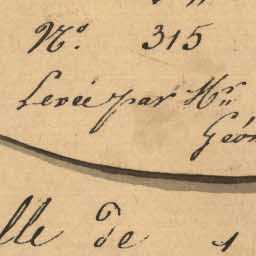 N.º 315
Levée par Mr.
Géom
lle De